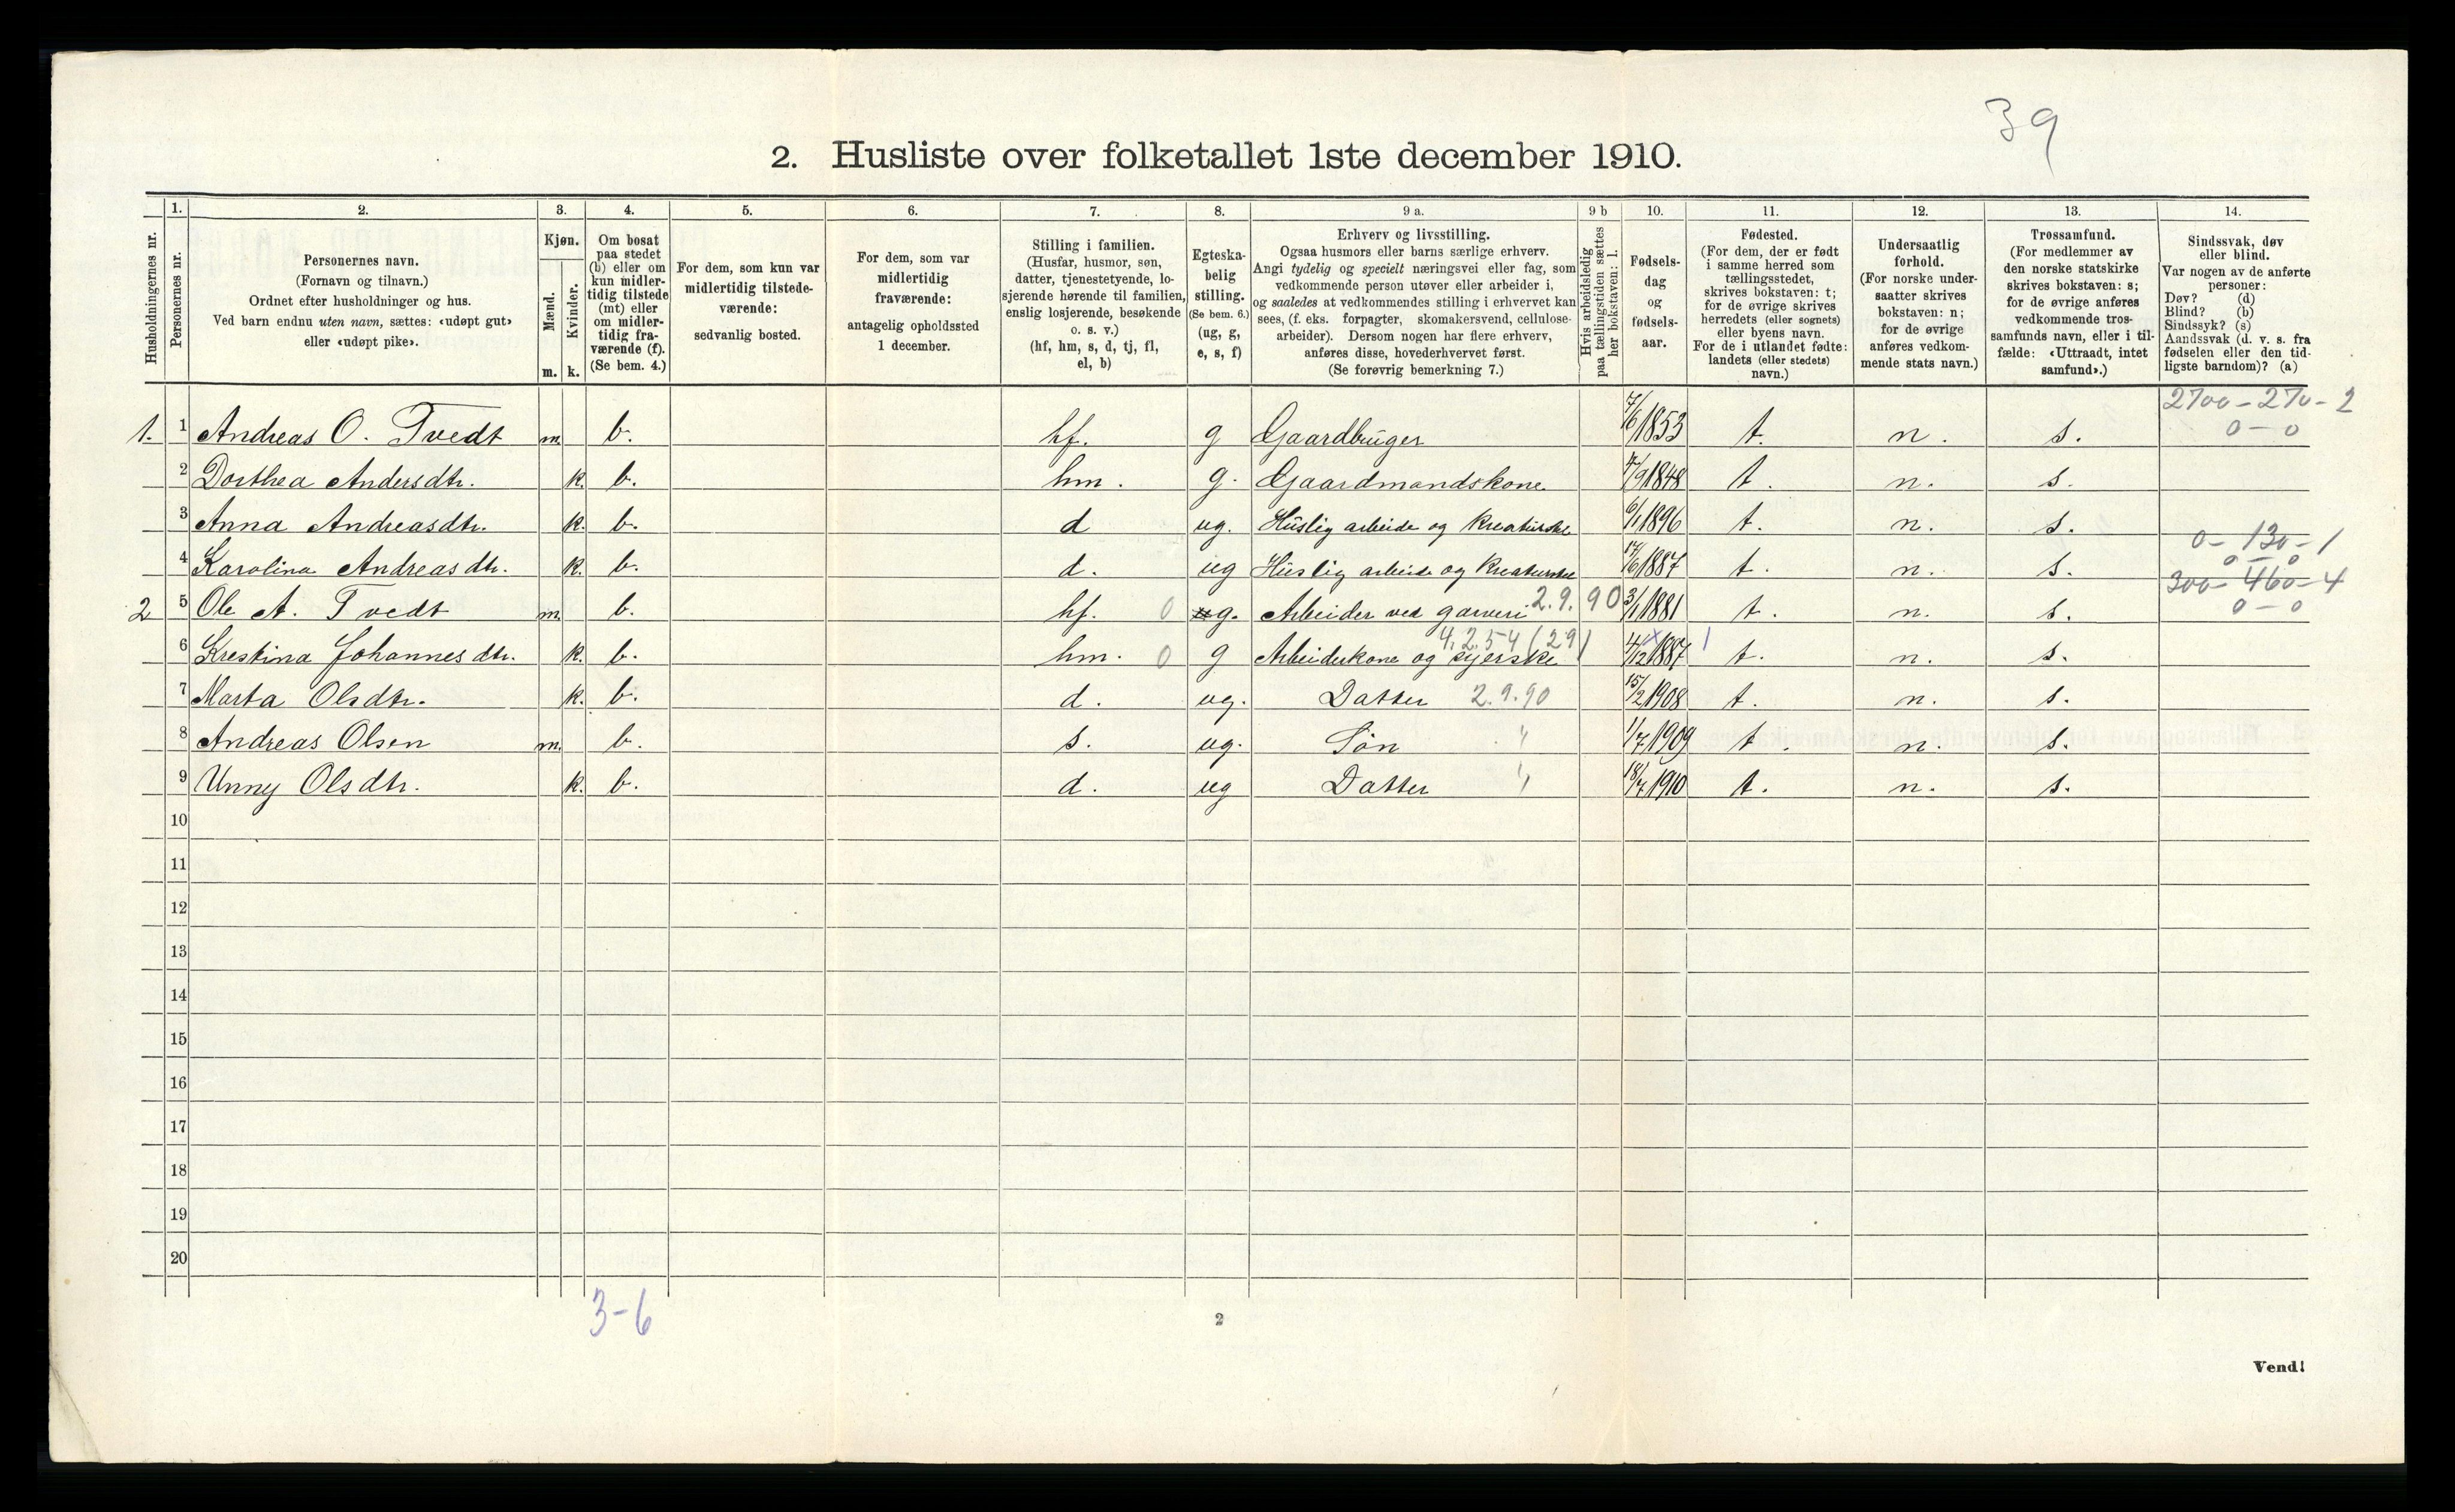 39
2. Husliste over folketallet 1ste december 1910.
Husholdningernes nr.
1. Personernes nr.
2. Personernes navn.
(Fornavn og tilnavn.)
Ordnet efter husholdninger og hus.
Ved barn endnu uten navn, sættes: «udøpt gut»
eller «udøpt pike».
3. Kjøn.
Mænd. m.
Kvinder. k.
4. Om bosat
paa stedet
(b) eller om
kun midler-
tidig tilstede
(mt) eller
om midler-
tidig fra-
værende (f).
(Se bem. 4.)
5. For dem, som kun var
midlertidig tilstede-
værende:
sedvanlig bosted.
6. For dem, som var
midlertidig
fraværende:
antagelig opholdssted
1 december.
7. Stilling i familien.
(Husfar, husmor, søn,
datter, tjenestetyende, lo-
sjerende hørende til familien,
enslig losjerende, besøkende
o. s. v.)
(hf, hm, s, d, tj, fl,
el, b)
8. Egteska-
belig
stilling.
(Se bem. 6.)
(ug, g,
e, s, f)
9 a. Erhverv og livsstilling.
Ogsaa husmors eller barns særlige erhverv.
Angi tydelig og specielt næringsvei eller fag, som
vedkommende person utøver eller arbeider i,
og saaledes at vedkommendes stilling i erhvervet kan
sees, (f. eks. forpagter, skomakersvend, cellulose-
arbeider). Dersom nogen har flere erhverv,
anføres disse, hovederhvervet først.
(Se forøvrig bemerkning 7.)
9 b Hvis arbeidsledig
paa tællingstiden sættes
her bokstaven: l.
10. Fødsels-
dag
og
fødsels-
aar.
11. Fødested.
(For dem, der er født
i samme herred som
tællingsstedet,
skrives bokstaven: t;
for de øvrige skrives
herredets (eller sognets)
eller byens navn.
For de i utlandet fødte:
landets (eller stedets)
navn.)
12. Undersaatlig
forhold.
(For norske under-
saatter skrives
bokstaven: n;
for de øvrige
anføres vedkom-
mende stats navn.)
13. Trossamfund.
(For medlemmer av
den norske statskirke
skrives bokstaven: s;
for de øvrige anføres
vedkommende tros-
samfunds navn, eller i til-
fælde: «Uttraadt, intet
samfund».)
14. Sindssvak, døv
eller blind.
Var nogen av de anførte
personer:
Døv? (d)
Blind? (b)
Sindssyk? (s)
Aandssvak (d. v. s. fra
fødselen eller den tid-
ligste barndom)? (a)
2700 - 270 - 2
1. 1 Andreas O. Tvedt m. b. hf. g Gaardbruger 7/6 1853 t. n. s. 0 - 0
2 Dorthea Andersdtr. k. b. hm. g. Gaardmandskone 1848 t. n. s.
3 Anna Andreasdtr. k. b. d ug. Huslig arbeide og Kreaturstel 6/1 1896 t. n. s.
0 - 130 - 1
4 Karolina Andreasdtr. k. b. d. ug Huslig arbeide og Kreaturstel 17/6 1887 t. n. s. 0 - 0
300 - 460 - 4
2 5 Ole A. Tvedt m. b. hf. 0 g. Arbeider ved garveri 2.9.90 3/1 1881 t. n. s. 0 - 0
4.2.54 (29)
6 Krestina Johannesdtr. k. b. hm. 0 g Arbeiderkone og syerske 4/12 1887 t. n. s.
7 Marta Olsdtr. k. b. d. ug. Datter 2.9.90 15/2 1908 t. n. s.
8 Andreas Olsen m. b. s. ug. Søn " 1/7 1909 t. n. s.
9 Unny Olsdtr. k. b. d. ug Datter " 18/7 1910 t. n. s.
10
11
12
13
14
15
16
17
18
19
20
3-6
2
Vend!